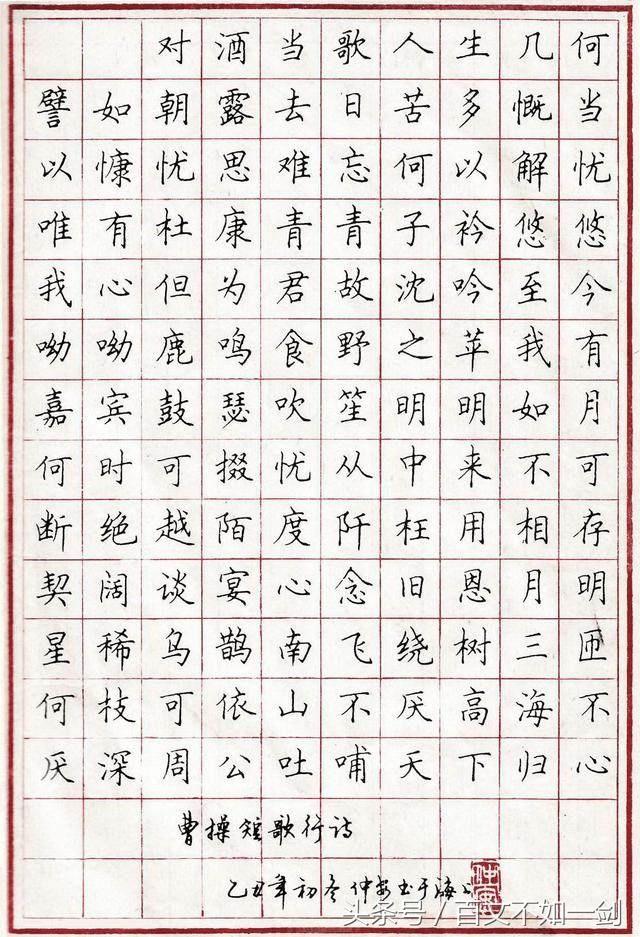 对酒当歌人生几何
譬如朝露去日苦多慨当
以慷忧思难忘何以解忧
唯有杜康青青子衿悠悠
我心但为君故沈吟至今
呦呦鹿鸣食野之苹我有
嘉宾鼓瑟吹笙明明如月
何时可掇忧从中来不可
断绝越陌度阡枉用相存
契阔谈宴心念旧恩月明
星稀乌鹊南飞绕树三匝
何枝可依山不厌高海不
厌深周公吐哺天下归心
曹操短歌行诗
乙丑年初冬仲书于海上
头条号/百文不如一剑